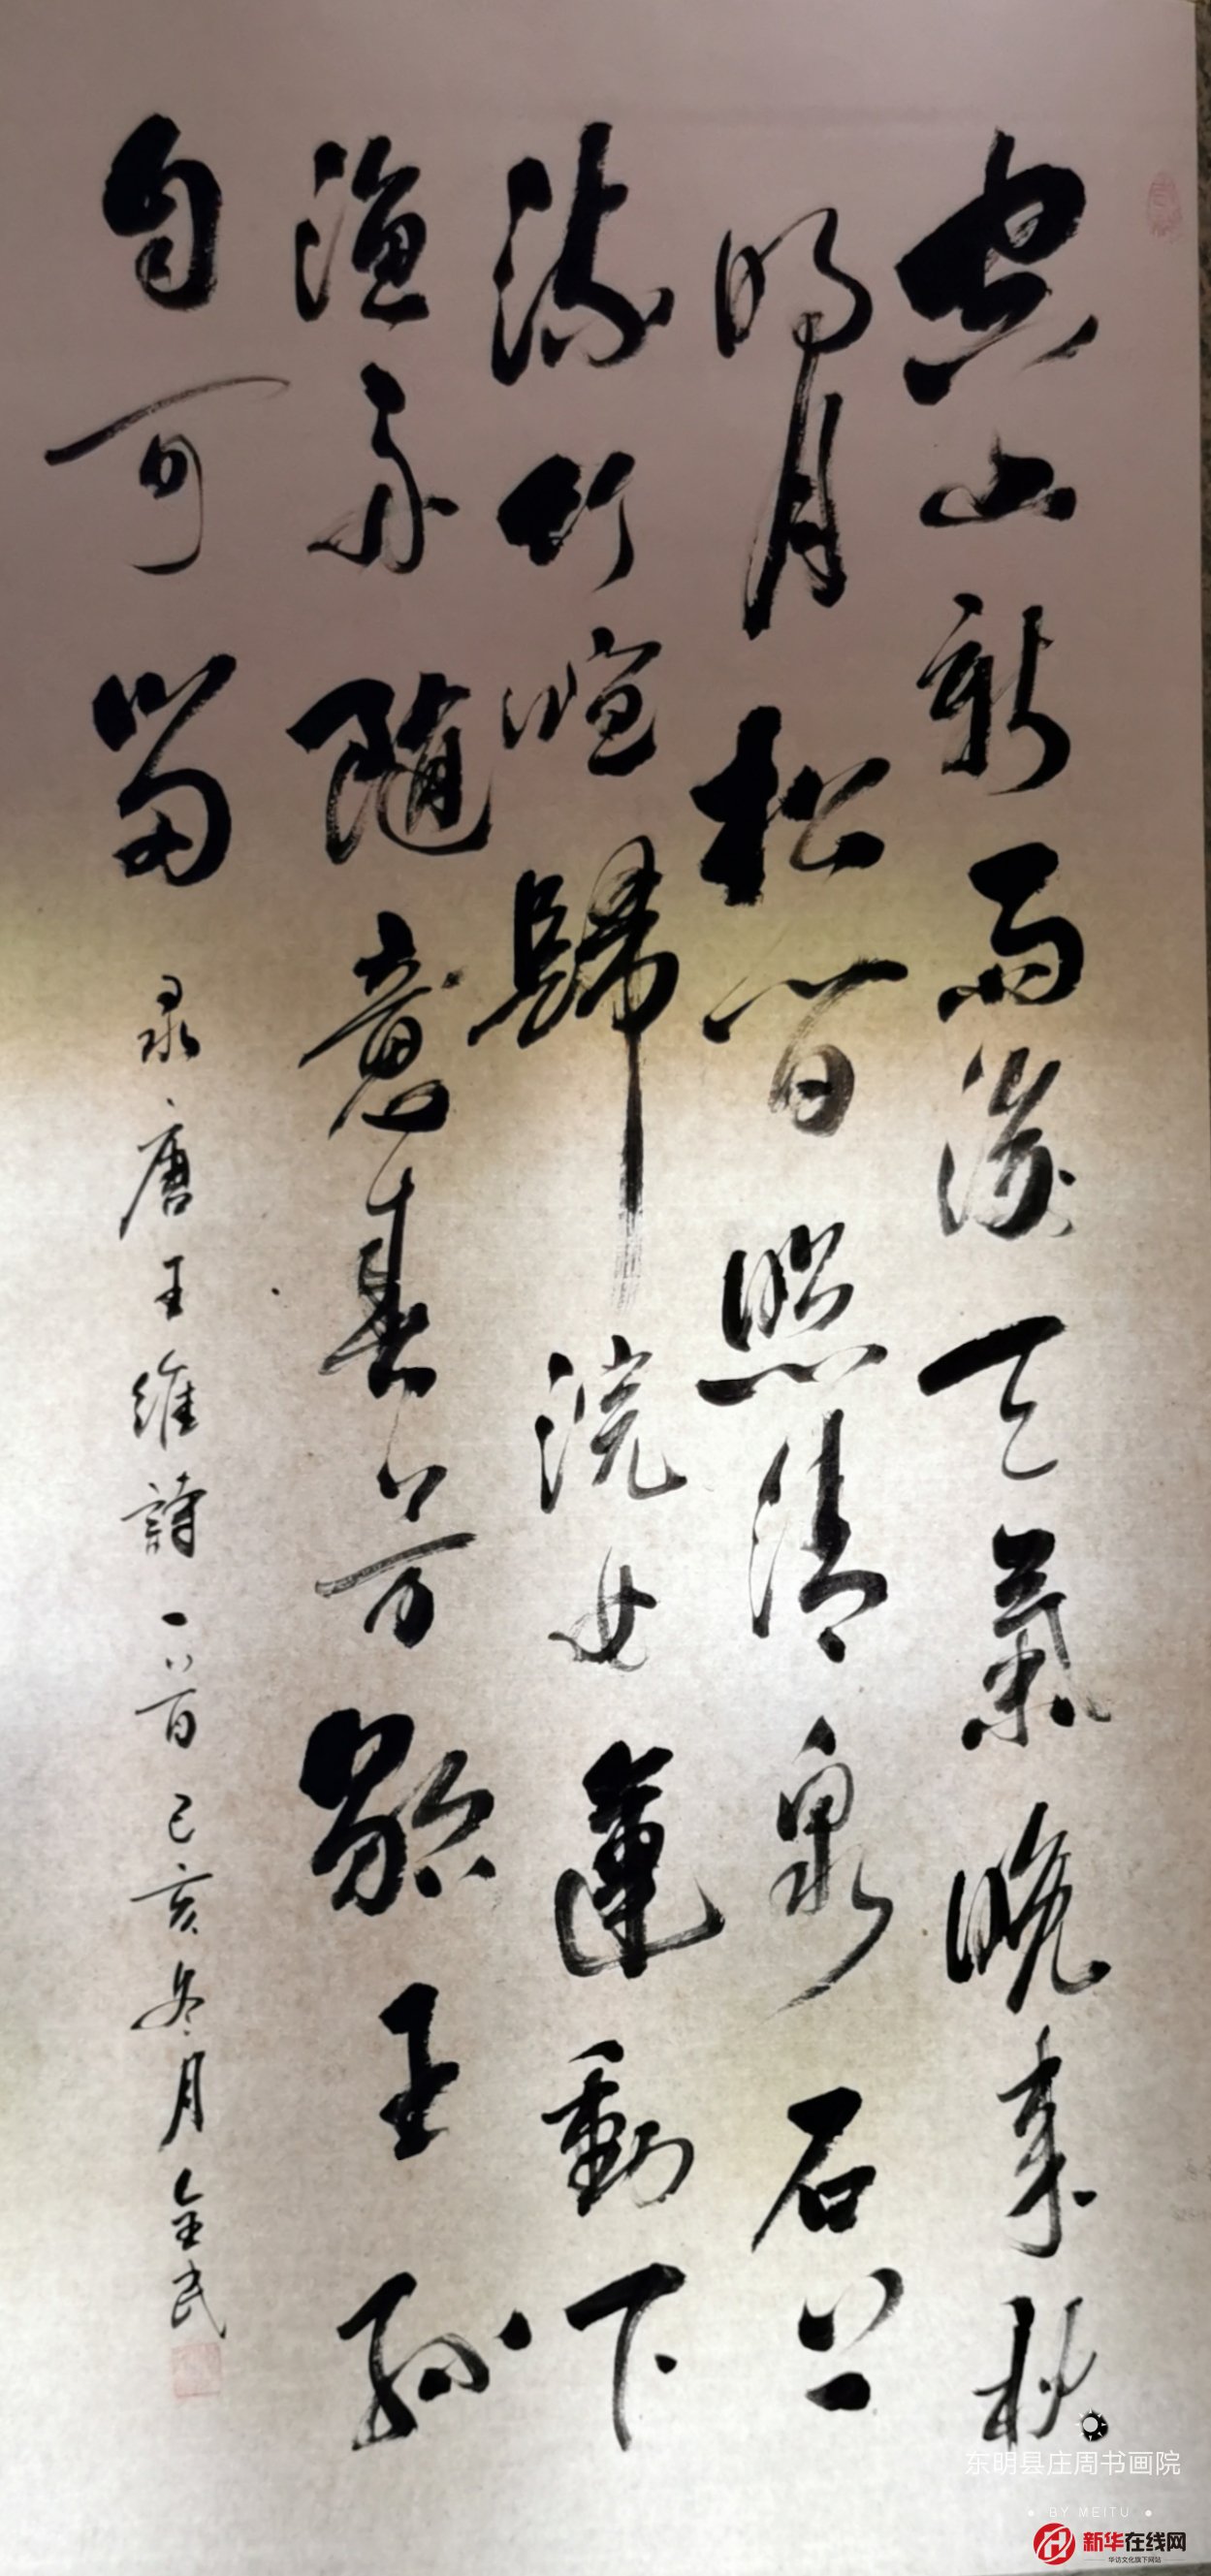 空山新雨後天氣晚来秋
明月松間照清泉石上
流竹喧歸浣女蓮動下
漁舟隨意春芳歇王孫
自可留
录唐王維詩一首己亥冬月
东明县庄周书画院
BY MEITU
新华在线网
华访文化旗下网站